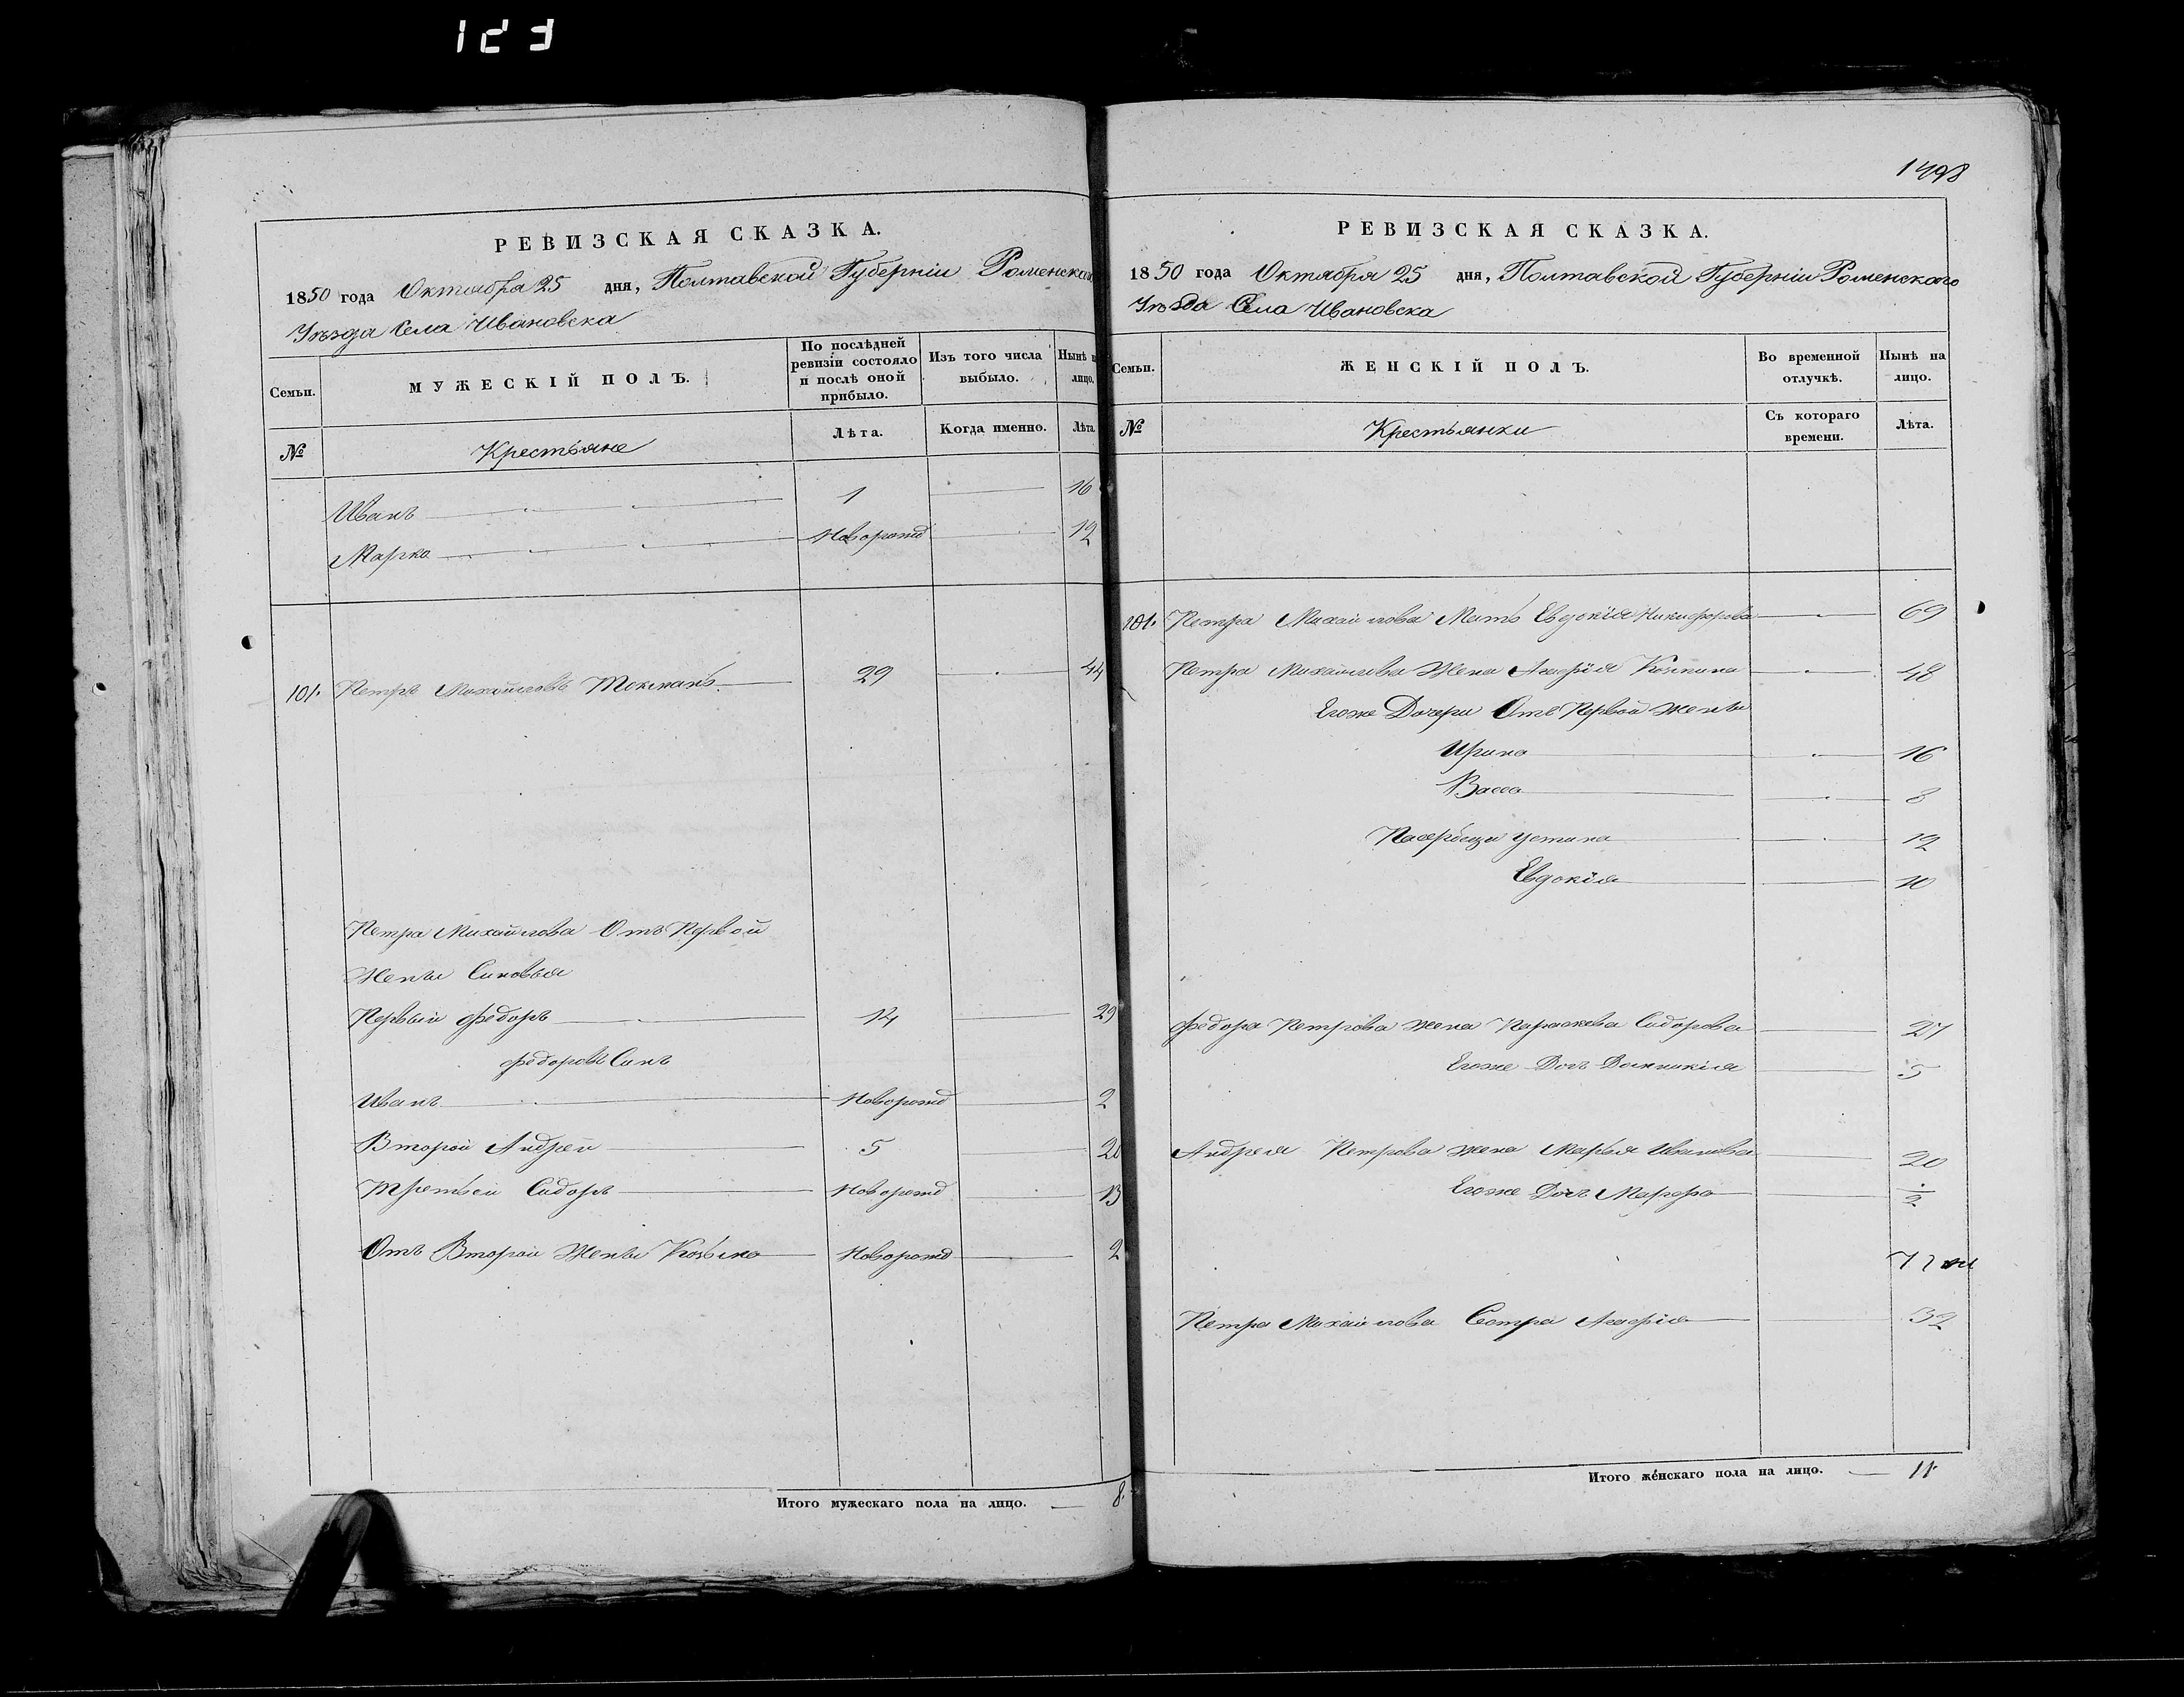 123
РЕВИЗСКАЯ СКАЗКА.
1850 года Октября 25 дня, Полтавской Губерніи Роменскаго
Уѣзда Села Ивановска
Семьи.
МУЖЕСКІЙ ПОЛЪ.
По послѣдней ревизіи состояло и послѣ оной прибыло.
Изъ того числа выбыло.
Нынѣ на лицо.
№
Крестьяне
Лѣта.
Когда именно.
Лѣта.
Иванъ 1 16
Марко Новорожд 12
101. Петръ Михайловъ Токманъ 29 44
Петра Михайлова Отъ Первой
Жены Сыновья
Первый Федоръ 14 29
Федоровъ Сынъ
Иванъ Новорожд 2
Второй Андрей 5 20
Третьей Сидоръ Новорожд 13
Отъ Второй Жены Козьма Новорожд 2
Итого мужескаго пола на лицо. 8.
1498
РЕВИЗСКАЯ СКАЗКА.
1850 года Октября 25 дня, Полтавской Губерніи Роменскаго
Уѣзда Села Ивановска
Семьи.
ЖЕНСКІЙ ПОЛЪ.
Во временной отлучкѣ.
Нынѣ на лицо.
№
Крестьянки
Съ котораго времени.
Лѣта.
101. Петра Михайлова Мать Евдокія Никифорова 69
Петра Михайлова Жена Агафія 48
Егоже Дочери Отъ Первой Жены
Ирина 16
Васса 8
Устина 12
Евдокія 10
Федора Петрова жена Параскева Сидорова 27
Егоже Дочь Домникія 5
Андрея Петрова жена Марья Иванова 20
Егоже Дочь Марфа
Петра Михайлова Сестра Агафія 32
Итого женскаго пола на лицо. 11.